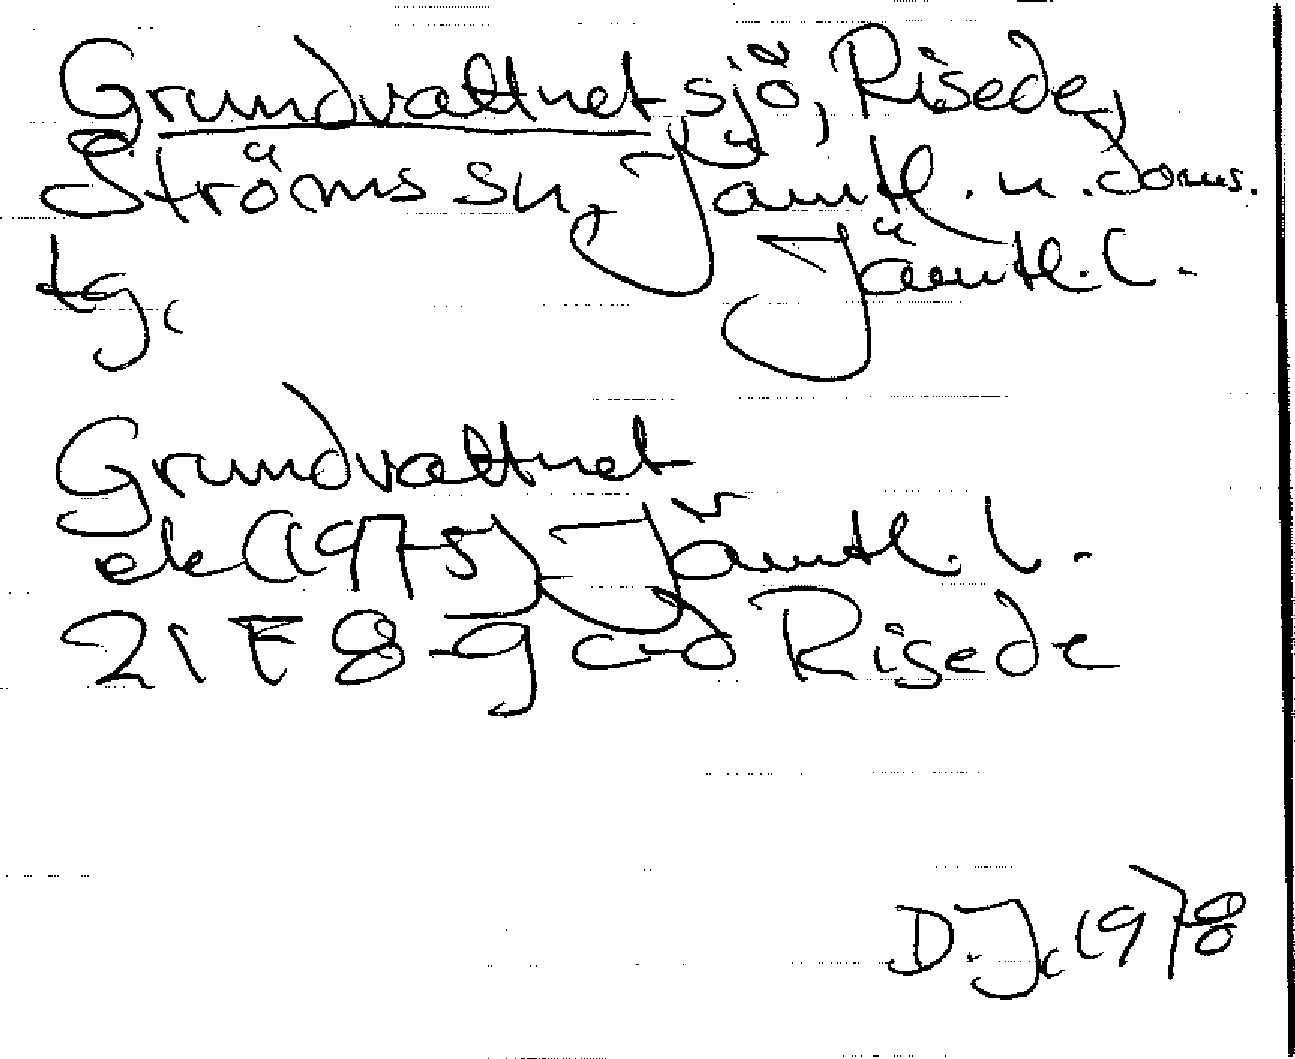 Grundvattnet sjö, Risede,
Ströms sn, Jämtl. n. doms.
tg. Jämtl. l.
Grundvattnet
ek (1975) Jämtl. l.
21 F 8-9 c-d Risede
D.J. 1978